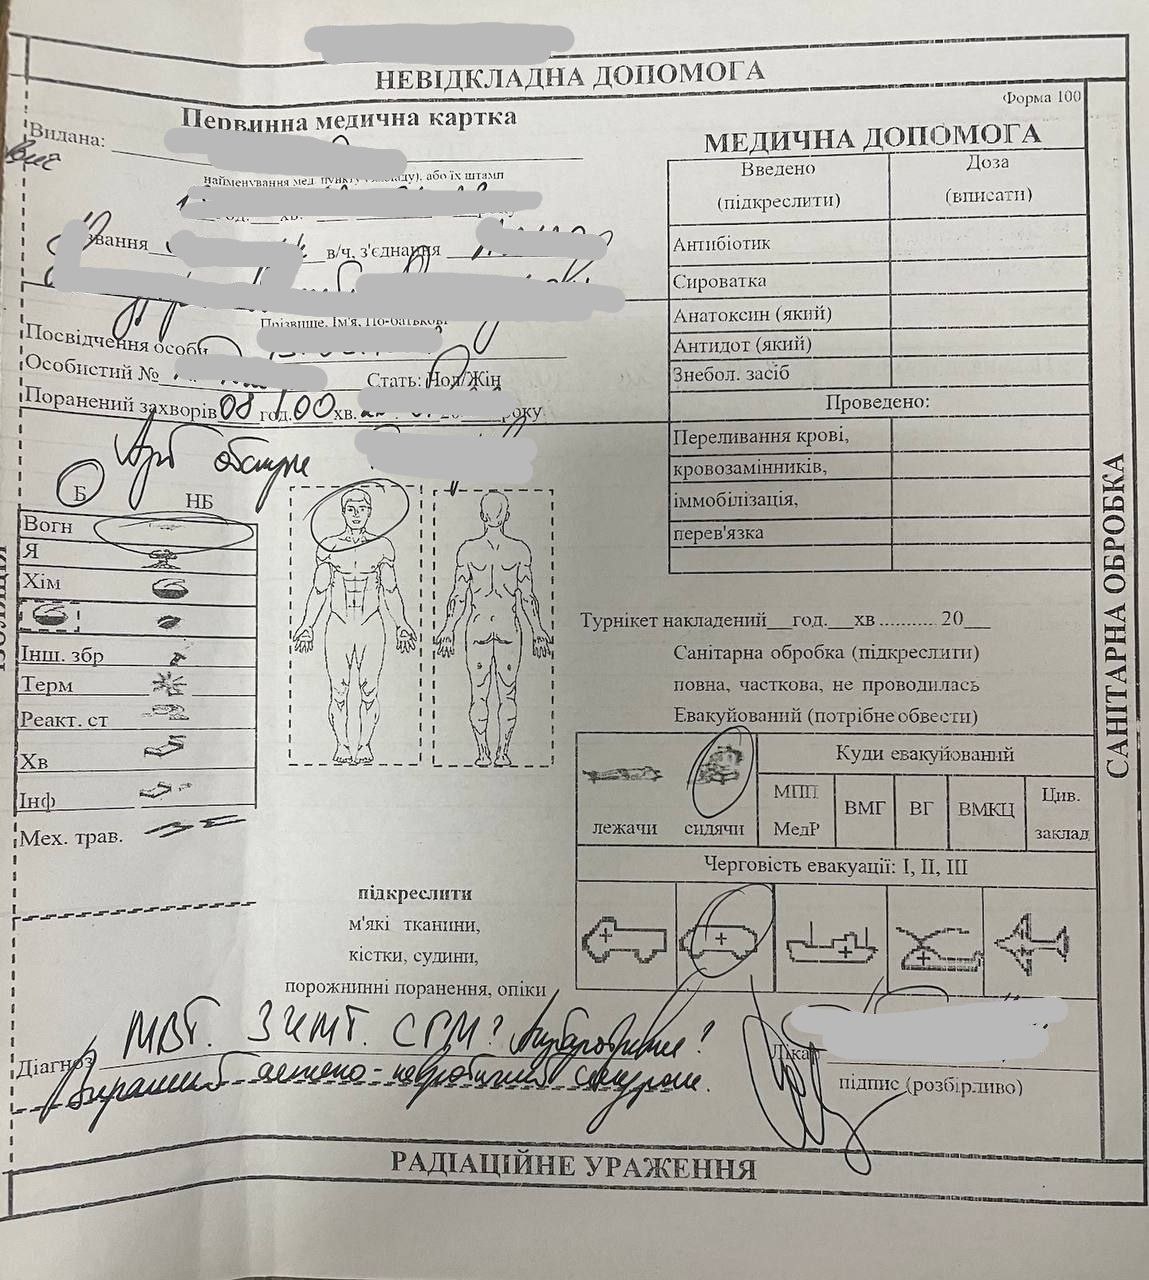 НЕВІДКЛАДНА ДОПОМОГА
Форма 100
Первинна медична картка
Видана:
найменування мед. пункту або їх штамп
звання в/ч, з'єднання
Прізвище, Ім'я, По-батькові
Посвідчення особи
Особистий №
Стать: Чол/Жін
Поранений захворів 08 год. 00 хв. 20 року
Арт обстріл
Б НБ
Вогн
Я
Хім
Інш. збр
Терм
Реакт. ст
Хв
Інф
Мех. трав.
підкреслити
м'які тканини,
кістки, судини,
порожнинні поранення, опіки
МЕДИЧНА ДОПОМОГА
Введено (підкреслити)
Доза (вписати)
Антибіотик
Сироватка
Анатоксин (який)
Антидот (який)
Знебол. засіб
Проведено:
Переливання крові,
кровозамінників,
іммобілізація,
перев'язка
Турнікет накладений__год.__хв.......... 20__
Санітарна обробка (підкреслити)
повна, часткова, не проводилась
Евакуйований (потрібне обвести)
лежачи сидячи
Куди евакуйований
МПП МедР
ВМГ
ВГ
ВМКЦ
Цив. заклад
Черговість евакуації: І, ІІ, ІІІ
Діагноз МВТ. ЗЧМТ. СГМ? Акубаротравма?
Виражений астено-невротичний синдром.
Лікар
підпис (розбірливо)
РАДІАЦІЙНЕ УРАЖЕННЯ
САНІТАРНА ОБРОБКА
ІЗОЛЯЦІЯ